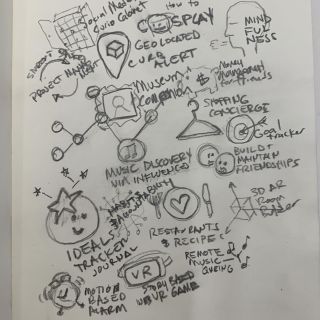 Social Media
Curio Cabinet
How to
COSPLAY
MIND
FUL
NESS
GEOLOCATED
CURB
ALERT
STUDENT
PROJECT
Museum
Companion
$
Money
Management
for
SHOPPING
CONCIERGE
Goal
Tracker
MUSIC DISCOVERY
VIA INFLUENCE
BUILD +
MAINTAIN
FRIENDSHIPS
HABIT
IDEALS
TRACKER
JOURNAL
RESTAURANTS
& RECIPES
3D AR
ROOM
REMOTE
MUSIC
QUEING
MOTION
BASED
ALARM
VR
STORY BASED
VR GAME